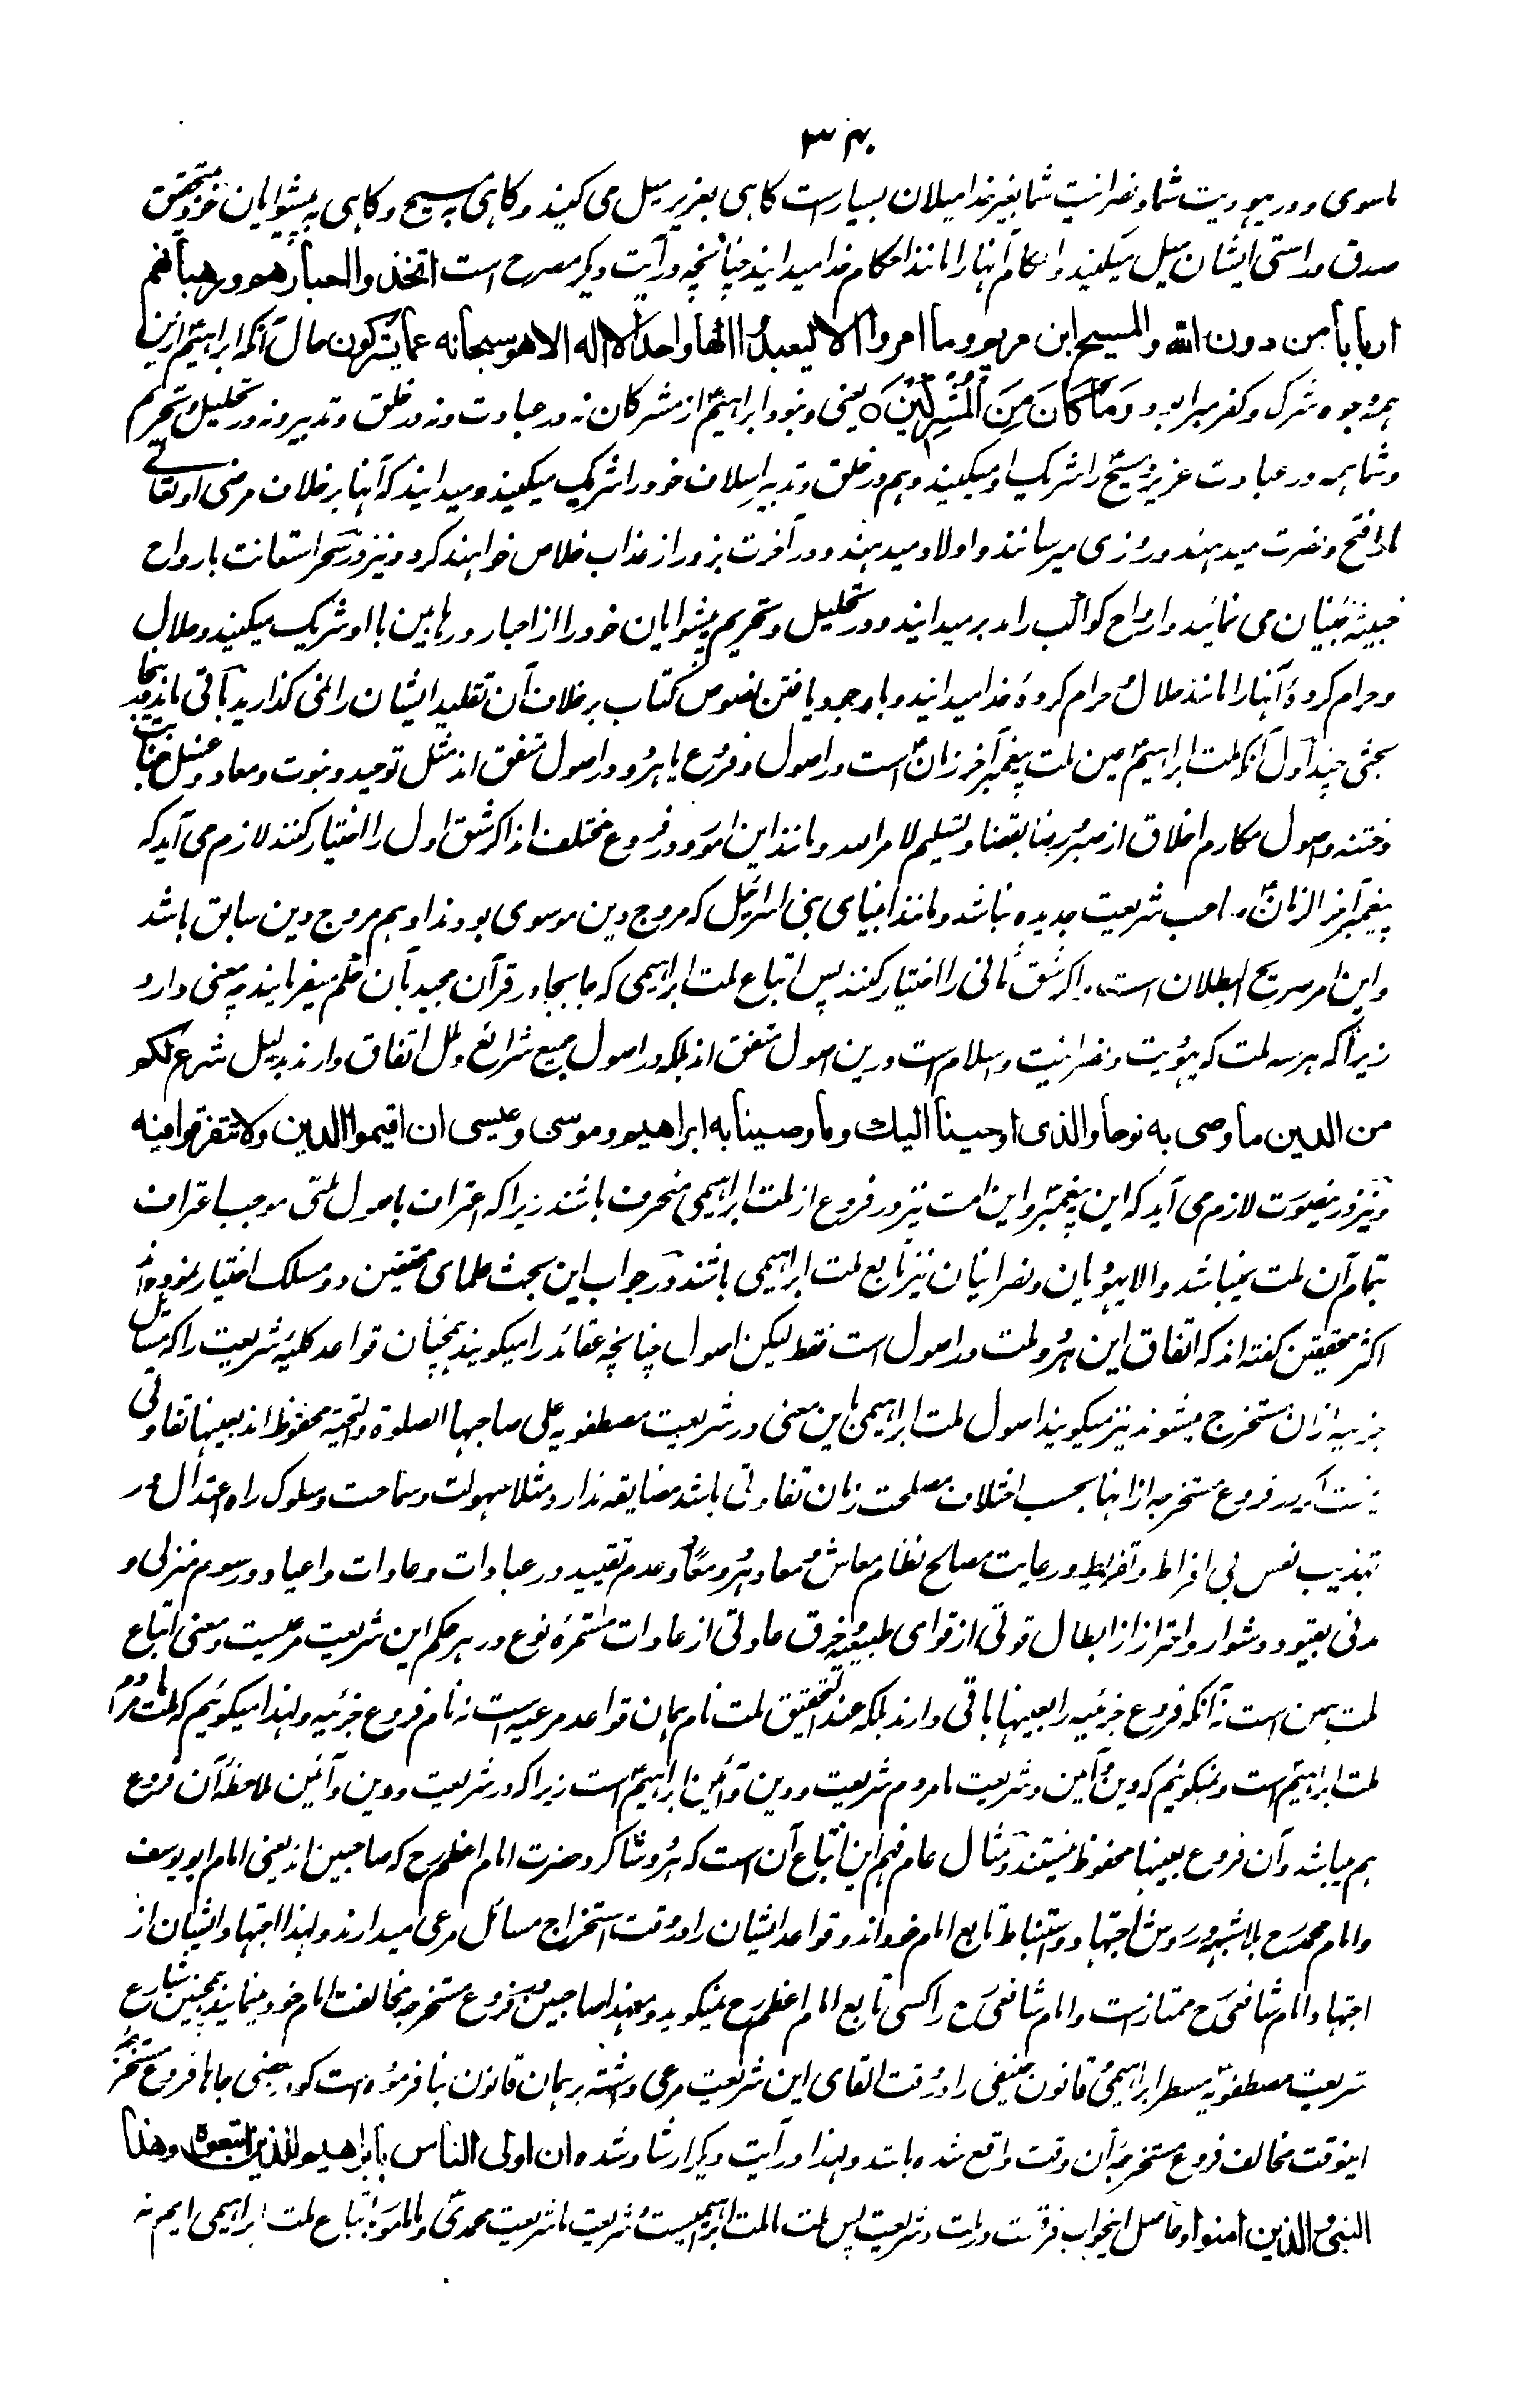 ماسوی و در یهودیت شما و نصرانیت شما بغیر خدا میلان بسیار است گاهی بعزیر میل می کنید و گاهی به مسیح و گاهی به پیشوایان خود بتحقیق
صدق و راستی ایشان میل میکنید و احکام آنها را مانند احکام خدا میدانید چنانچه در آیت دیگر مصرح است اتخذوا احبارهم ورهبانهم
اربابا من دون الله والمسیح ابن مریم وما امروا الا لیعبدوا الها واحدا لا اله الا هو سبحانه عما یشرکون حال آنکه ابراهیم ازین
همه وجوه شرک و کفر مبرا بود وَمَا كَانَ مِنَ الْمُشْرِكِيْنَ ه یعنی و نبود ابراهیم از مشرکان نه در عبادت و نه در خلق و تدبیر و نه در تحلیل و تحریم
و شما همه در عبادت عزیر و مسیح را شریک او میکنید و هم در خلق و تدبیر اسلاف خود را شریک میکنید و میدانید که آنها بر خلاف مرضی او تعالی
ما را فتح و نصرت میدهند و روزی میرسانند و اولاد میدهند و در آخرت بزور از عذاب خلاص خواهند کرد و نیز در سحر استعانت بارواح
خبیثه جنیان می نمائید و ارواح کواکب را مدبر میدانید و در تحلیل و تحریم پیشوایان خود را از احبار و رهابین با او شریک میکنید و حلال
و حرام کردهٔ آنها را مانند حلال و حرام کردهٔ خدا میدانید و باوجود یافتن نصوص کتاب بر خلاف آن تقلید ایشان را نمی گذارید باقی ماند درینجا
بحثی چند اول آنکه ملت ابراهیم عین ملت پیغمبر آخر زمان است در اصول و فروع یا هر دو در اصول متفق اند مثل توحید و نبوت و معاد و غسل جنابت
و ختنه و اصول مکارم اخلاق از صبر و رضا بقضا و تسلیم لامر الله و مانند این امور و در فروع مختلف اند اگر شق اول را اختیار کنند لازم می آید که
پیغمبر آخر الزمان صاحب شریعت جدیده نباشد و مانند انبیای بنی اسرائیل که مروج دین موسوی بودند او هم مروج دین سابق باشد
و این امر صریح البطلان است و اگر شق ثانی را اختیار کنند پس اتباع ملت ابراهیمی که جا بجا در قرآن مجید بآن حکم میفرمایند چه معنی دارد
زیرا که هر سه ملت که یهودیت و نصرانیت و اسلام است درین اصول متفق اند بلکه در اصول جمیع شرائع و ملل اتفاق دارند بدلیل شرع لکم
من الدین ما وصی به نوحا والذی اوحینا الیك وما وصینا به ابراهیم وموسی وعیسی ان اقیموا الدین ولا تتفرقوا فیه
و نیز درینصورت لازم می آید که این پیغمبر و این امت نیز در فروع از ملت ابراهیمی منحرف باشند زیرا که اعتراف باصول ملتی موجب اعتراف
بتمام آن ملت نمیباشد والا یهودیان و نصرانیان نیز تابع ملت ابراهیمی باشند در جواب این بحث علمای محققین دو مسلک اختیار نموده اند
اکثر محققین گفته اند که اتفاق این هر دو ملت در اصول است فقط لیکن اصول چنانچه عقائد را میگویند همچنان قواعد کلیه شریعت را که مسائل
جزئیه ازان مستخرج میشوند نیز میگویند اصول ملت ابراهیمی باین معنی در شریعت مصطفویه علی صاحبها الصلوة والتحیة محفوظ اند بعینها تفاوتی
نیست اگر در فروع مستخرجه از انها بحسب اختلاف مصلحت زمان تفاوتی باشد مضایقه ندارد مثلا سهولت و سماحت و سلوک راه اعتدال در
تهذیب نفس بی افراط و تفریط و رعایت مصالح نظام معاش و معاد هر دو معًا و عدم تقیید در عبادات و عادات و اعیاد و رسوم منزلی و
مدنی بقیود دشوار و احتراز از ابطال قوتی از قوای طبیعیه و خرق عادتی از عادات مستمرهٔ نوع در هر حکم این شریعت مرعیست و معنی اتباع
ملت همین است نه آنکه فروع جزئیه را بعینها باقی دارند بلکه عند التحقیق ملت نام همان قواعد مرعیه است نه نام فروع جزئیه و لهذا میگوئیم که ملت ما مردم
ملت ابراهیم است و نمیگوئیم که دین و آئین و شریعت ما مردم شریعت و دین و آئین ابراهیم است زیرا که در شریعت و دین و آئین ملاحظهٔ آن فروع
هم میباشد و آن فروع بعینها محفوظ نیستند و مثال عام فهم این اتباع آن است که هر دو شاگرد حضرت امام اعظم رح که صاحبین اند یعنی امام ابو یوسف
و امام محمد رح بلا شبهه در روش اجتهاد و استنباط تابع امام خود اند و قواعد ایشان را در وقت استخراج مسائل مرعی میدارند و لهذا اجتهاد ایشان از
اجتهاد امام شافعی رح ممتاز است و امام شافعی رح را کسی تابع امام اعظم رح نمیگوید و معهذا صاحبین در فروع مستخرجه مخالفت امام خود مینمایند همچنین شارع
شریعت مصطفویه مسطر ابراهیمی و قانون حنیفی را در وقت القای این شریعت مرعی داشته بر همان قانون بنا فرموده است گو بعضی جاها فروع مستخرجه
اینوقت مخالف فروع مستخرجهٔ آن وقت واقع شده باشد و لهذا در آیت دیگر ارشاد شده ان اولی الناس بابراهیم للذین اتبعوه وهذا
النبی والذین امنوا و حاصل اینجواب فرق است در ملت و شریعت پس ملت ما ملت ابراهیمیست و شریعت ما شریعت محمدی و ما مامور باتباع ملت ابراهیمی ایم نه